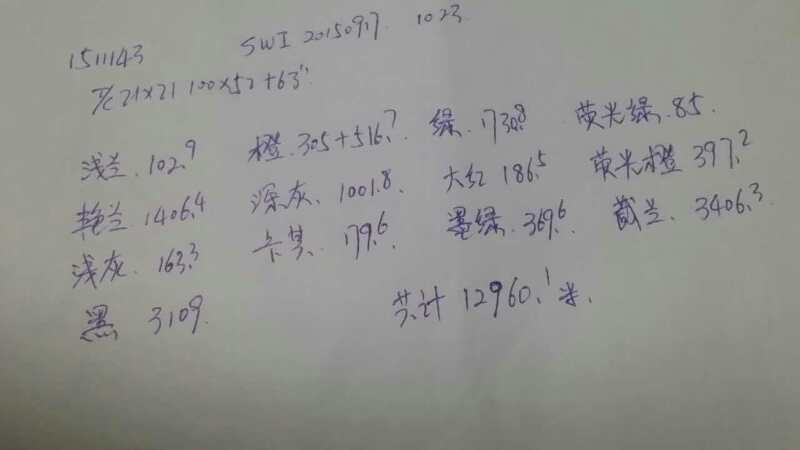 1511143 SWI 20150917. 1023
T/C 21×21 100×52+63"
浅兰. 102.9 橙. 305+516.7 绿. 1730.8 荧光绿. 85.
艳兰 1406.4 深灰. 1001.8. 大红 186.5 荧光橙 397.2
浅灰. 163.3 卡其. 179.6. 墨绿. 369.6 藏兰. 3406.3
黑 3109. 共计 12960.1米.